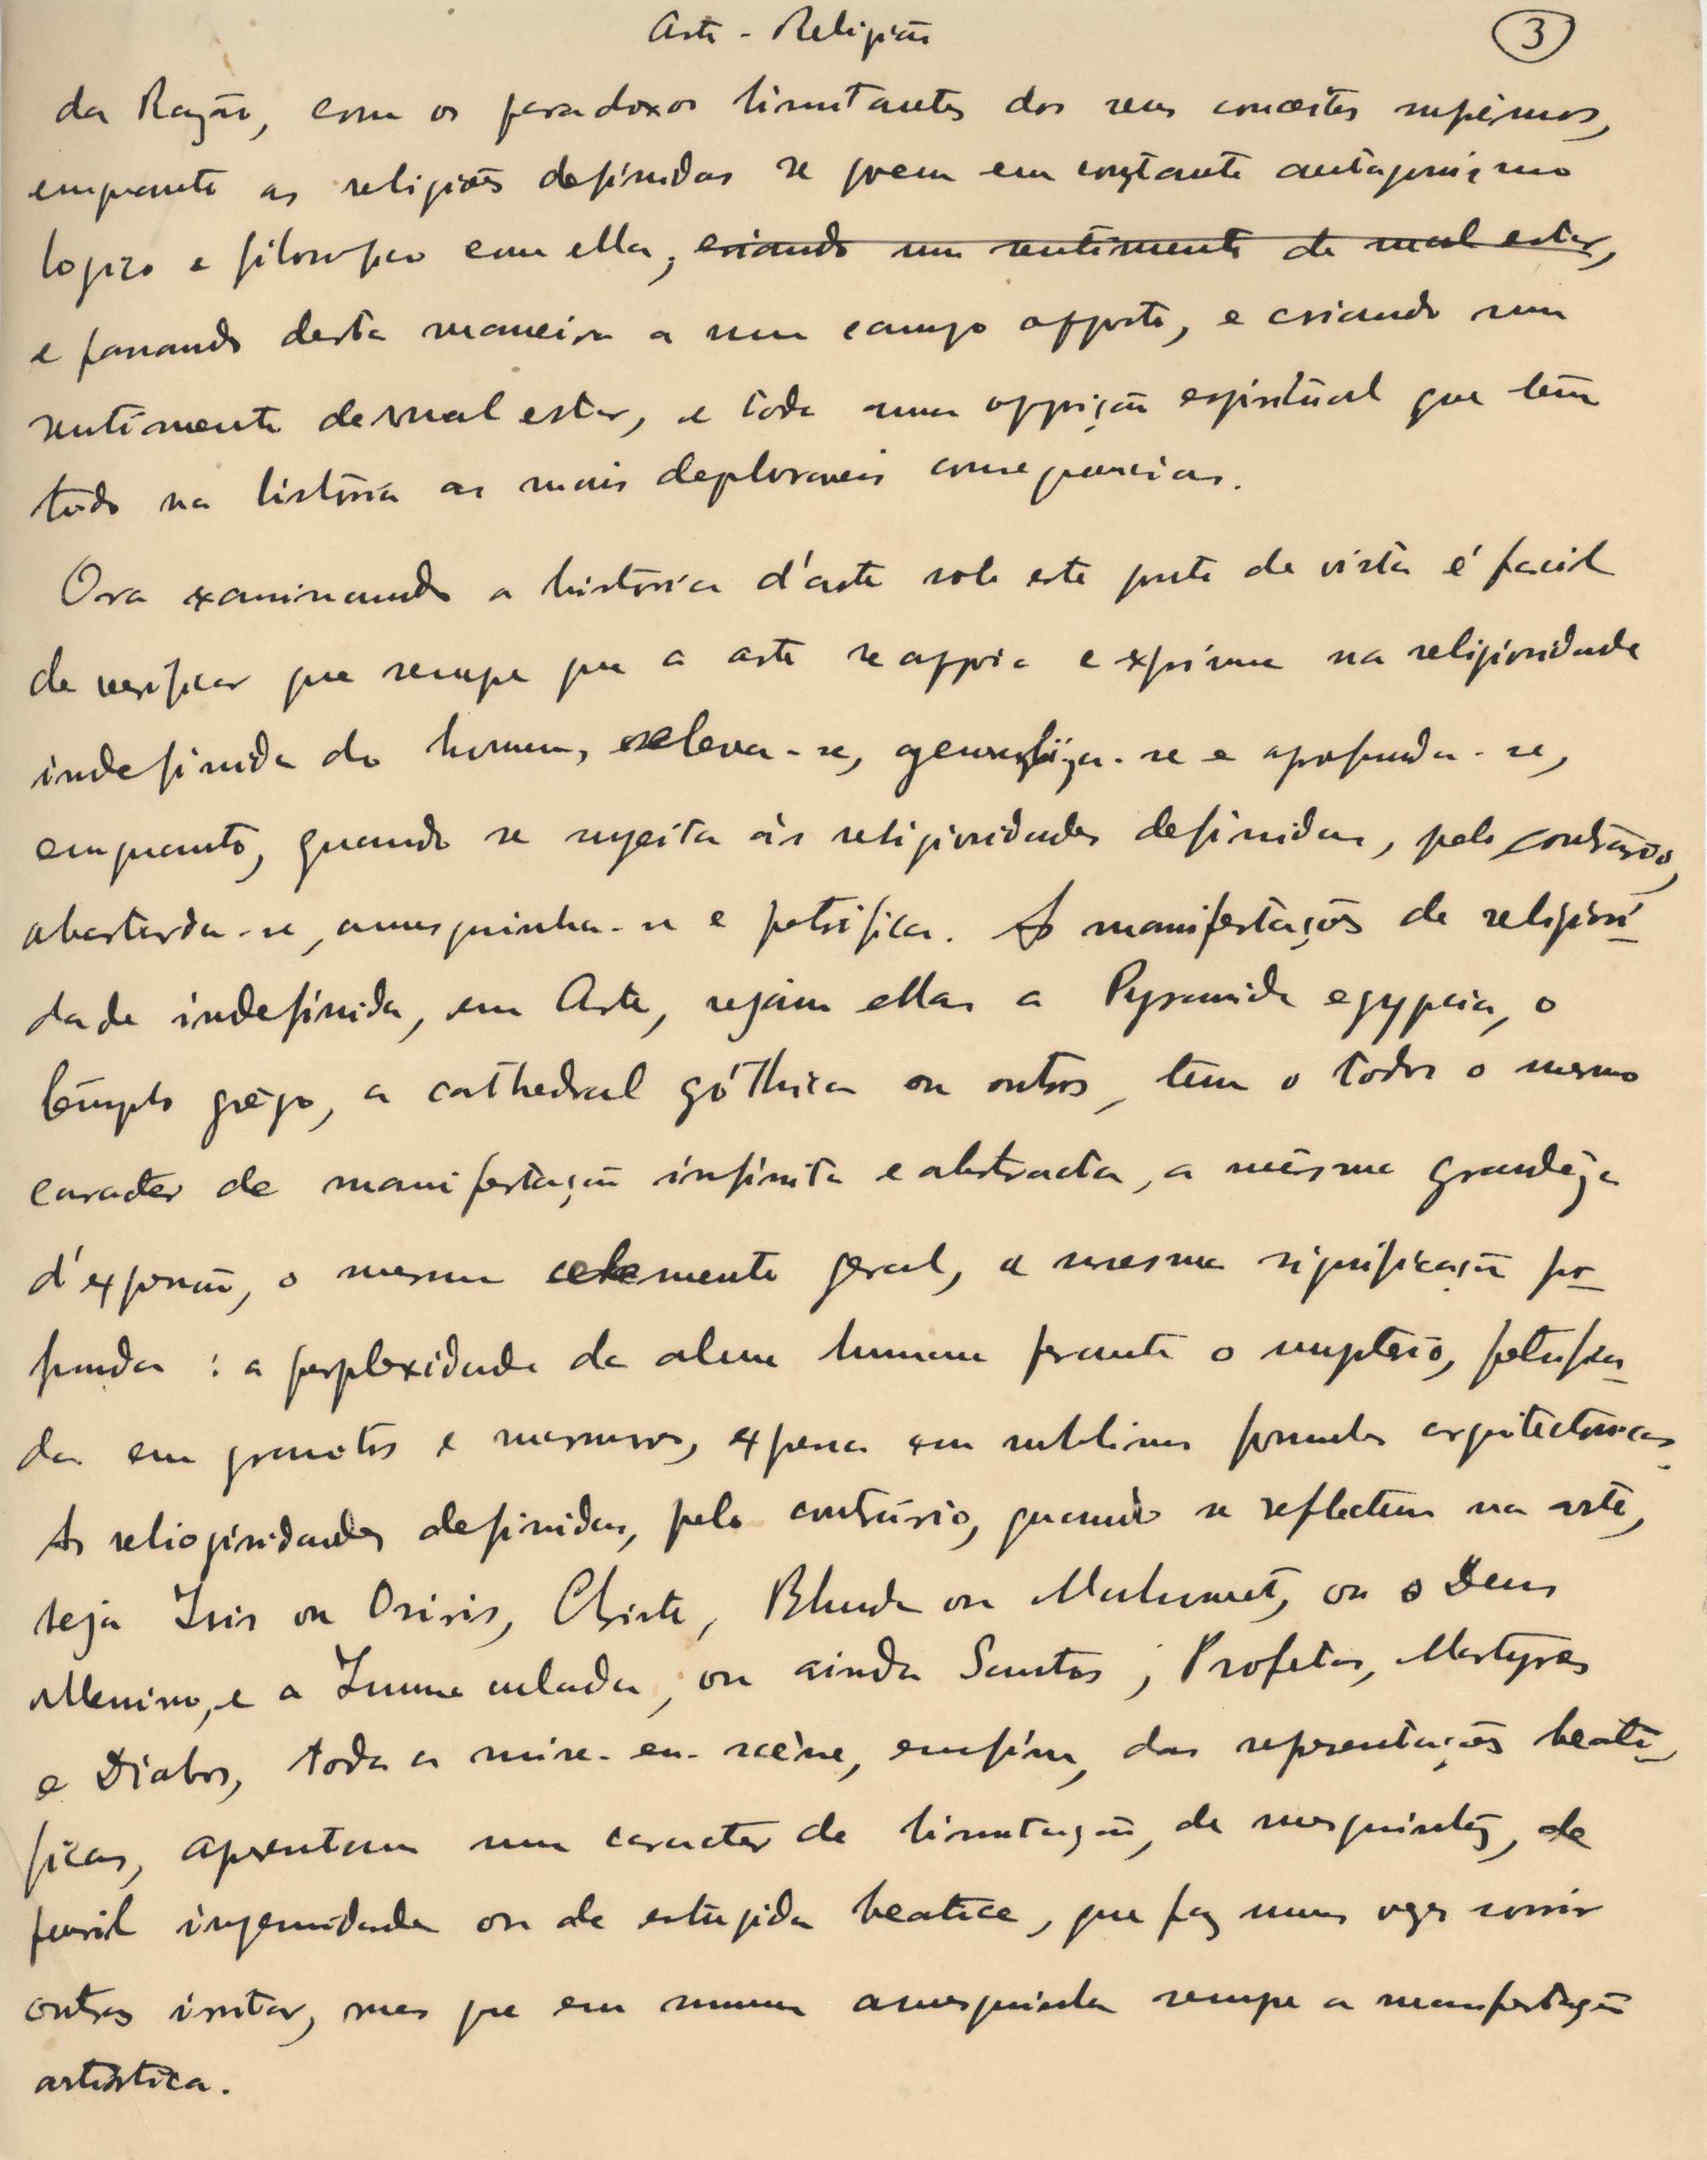 Arte - Religião
3
da Razão, com os paradoxos limitantes dos seus conceitos supremos,
emquanto as religiões definidas se poem em constante antagonismo
logico e filosofico com ella, criando um sentimento de mal estar,
e passando desta maneira a um campo opposto, e criando um
sentimento de mal estar, e toda uma opposição espiritual que tem
tido na história as mais deploraveis consequencias.
Ora examinando a história d'arte sob este ponto de vista é facil
de verificar que sempre que a arte se appoia e exprime na religiosidade
indefinida do homem, eleva-se, generaliza-se e aprofunda-se,
emquanto, quando se sujeita às religiosidades definidas, pelo contrário,
abastarda-se, amesquinha-se e petrifica. As manifestações de religiosi-
dade indefinida, em Arte, sejam ellas a Pyramide egypcia, o
têmplo grêgo, a cathedral góthica ou outros, têm todos o mesmo
caracter de manifestação infinita e abstracta, a mêsma grandêza
d'expressão, o mesmo elemento geral, a mesma significação pro-
funda : a perplexidade da alma humana perante o mysterio, petrifica-
da em granitos e marmores, expressa em sublimes formulas arquitectonicas.
As religiosidades definidas, pelo contrário, quando se reflectem na arte,
seja Isis ou Osiris, Christo, Bhuda ou Mahomet, ou o Deus
Menino, e a Immaculada, ou ainda Santos, Profetas, Martyres
e Diabos, toda a mise-en-scène, emfim, das representações beati-
ficas, apresentam um caracter de limitação, de mesquinhez, de
pueril ingenuidade ou de estúpida beatice, que faz umas vezes sorrir
outras irritar, mas que em summa amesquinha sempre a manifestação
artística.